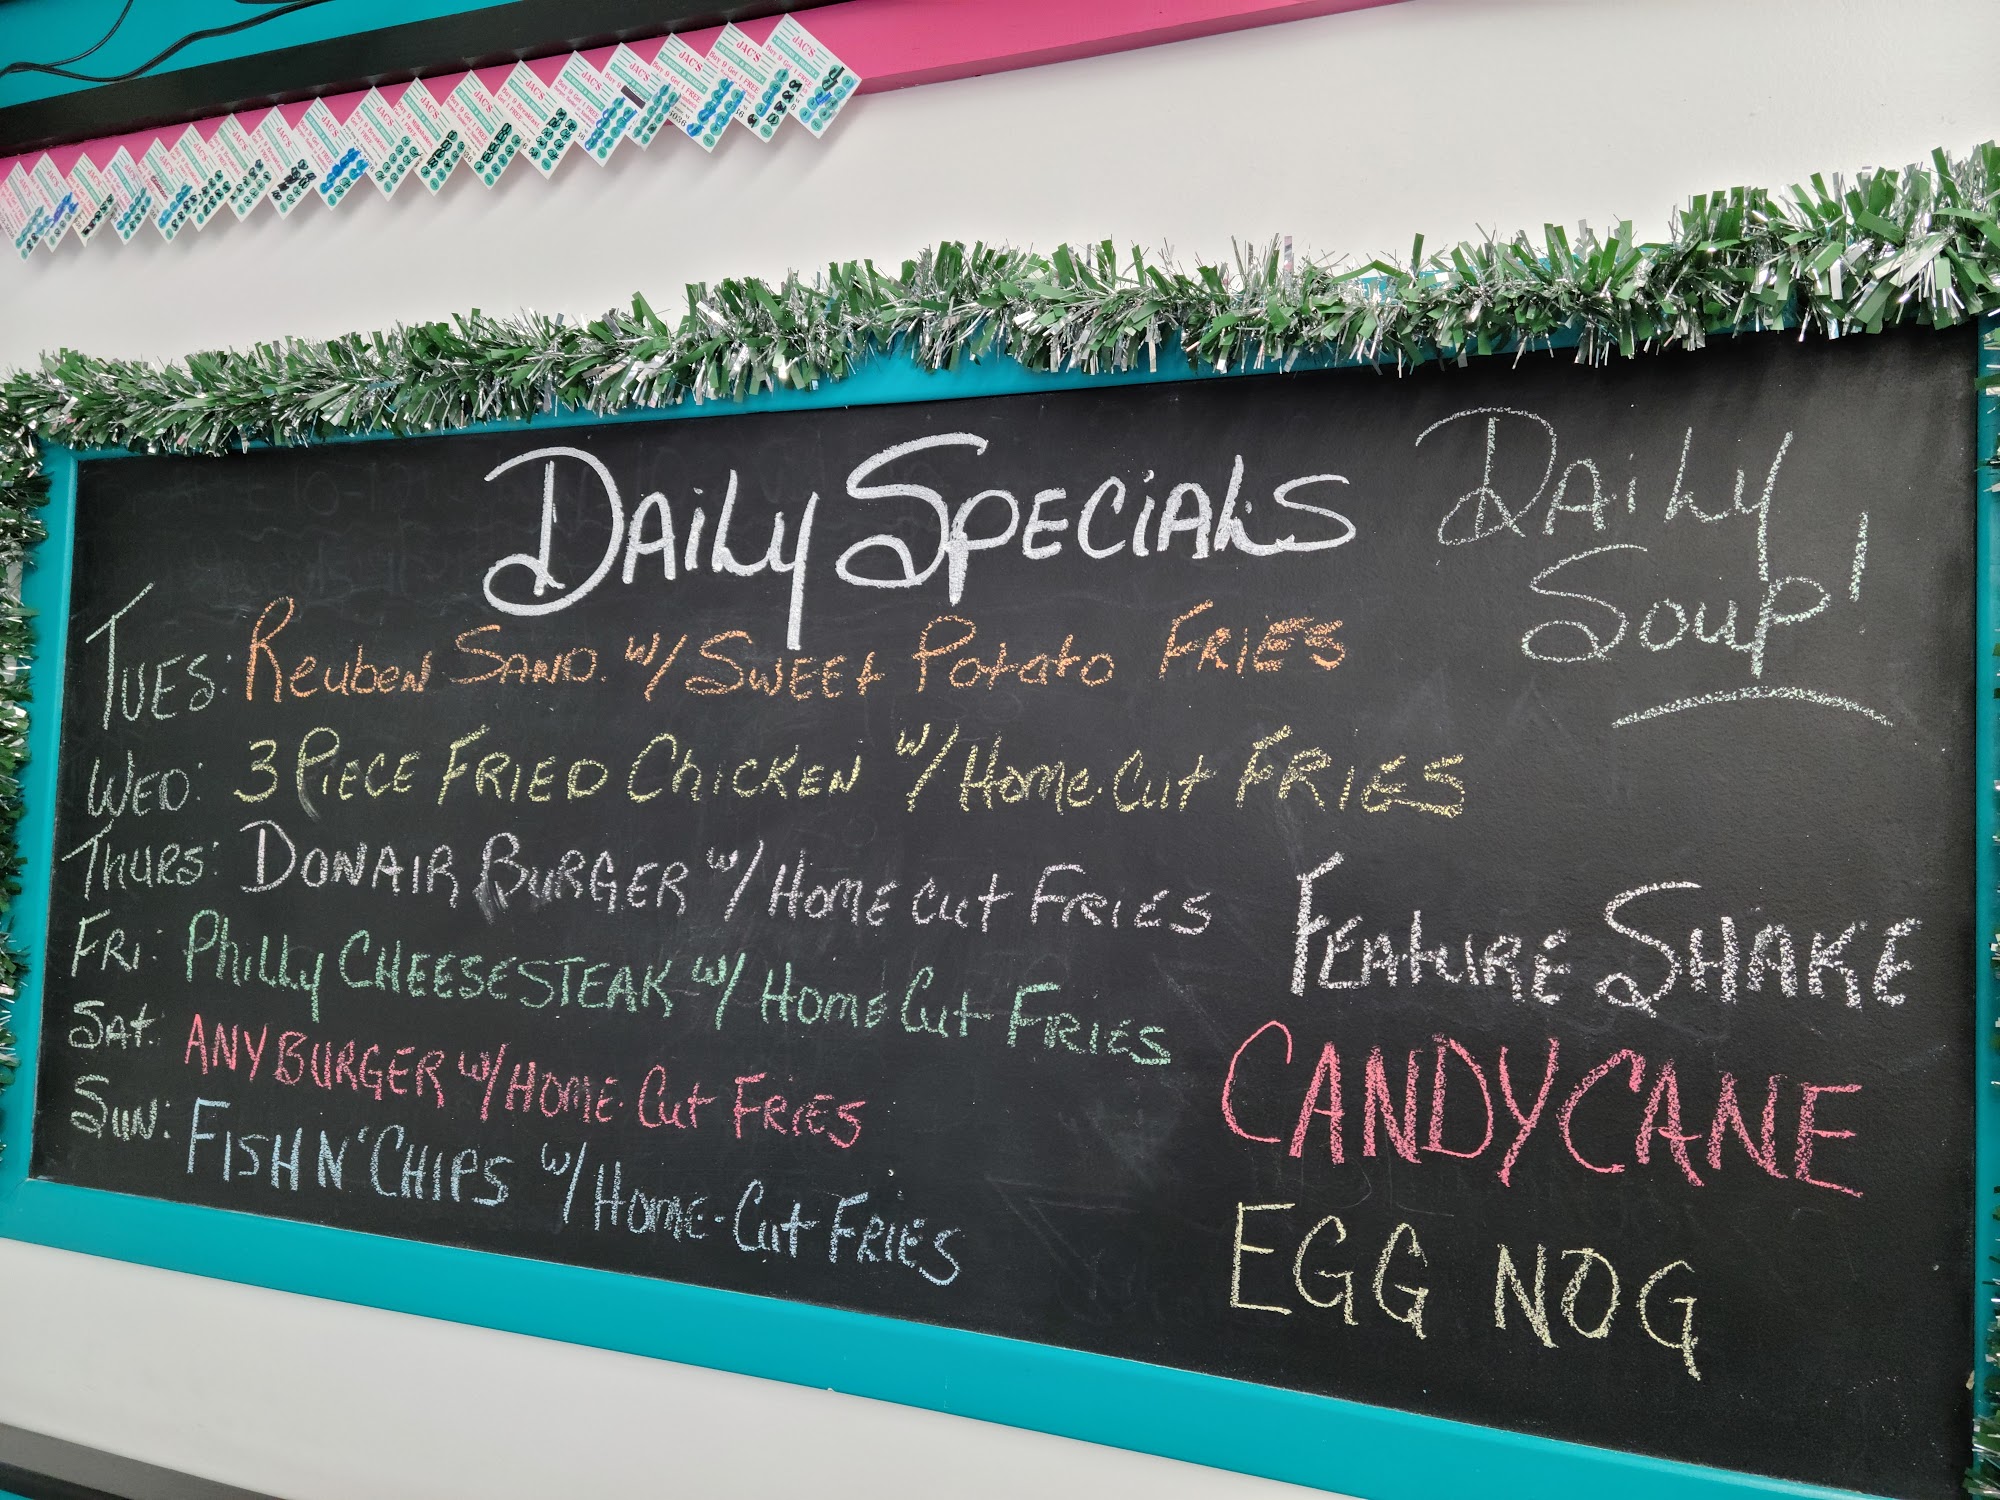 JAC'S
Buy 9 Get 1 FREE
Daily Specials
Tues: Reuben Sand. w/ Sweet Potato Fries
Wed: 3 Piece Fried Chicken w/ Home-Cut Fries
Thurs: Donair Burger w/ Home Cut Fries
Fri: Philly Cheesesteak w/ Home Cut Fries
Sat: Any Burger w/ Home-Cut Fries
Sun: Fish N' Chips w/ Home-Cut Fries
Daily
Soup!
Feature Shake
CANDYCANE
EGG NOG